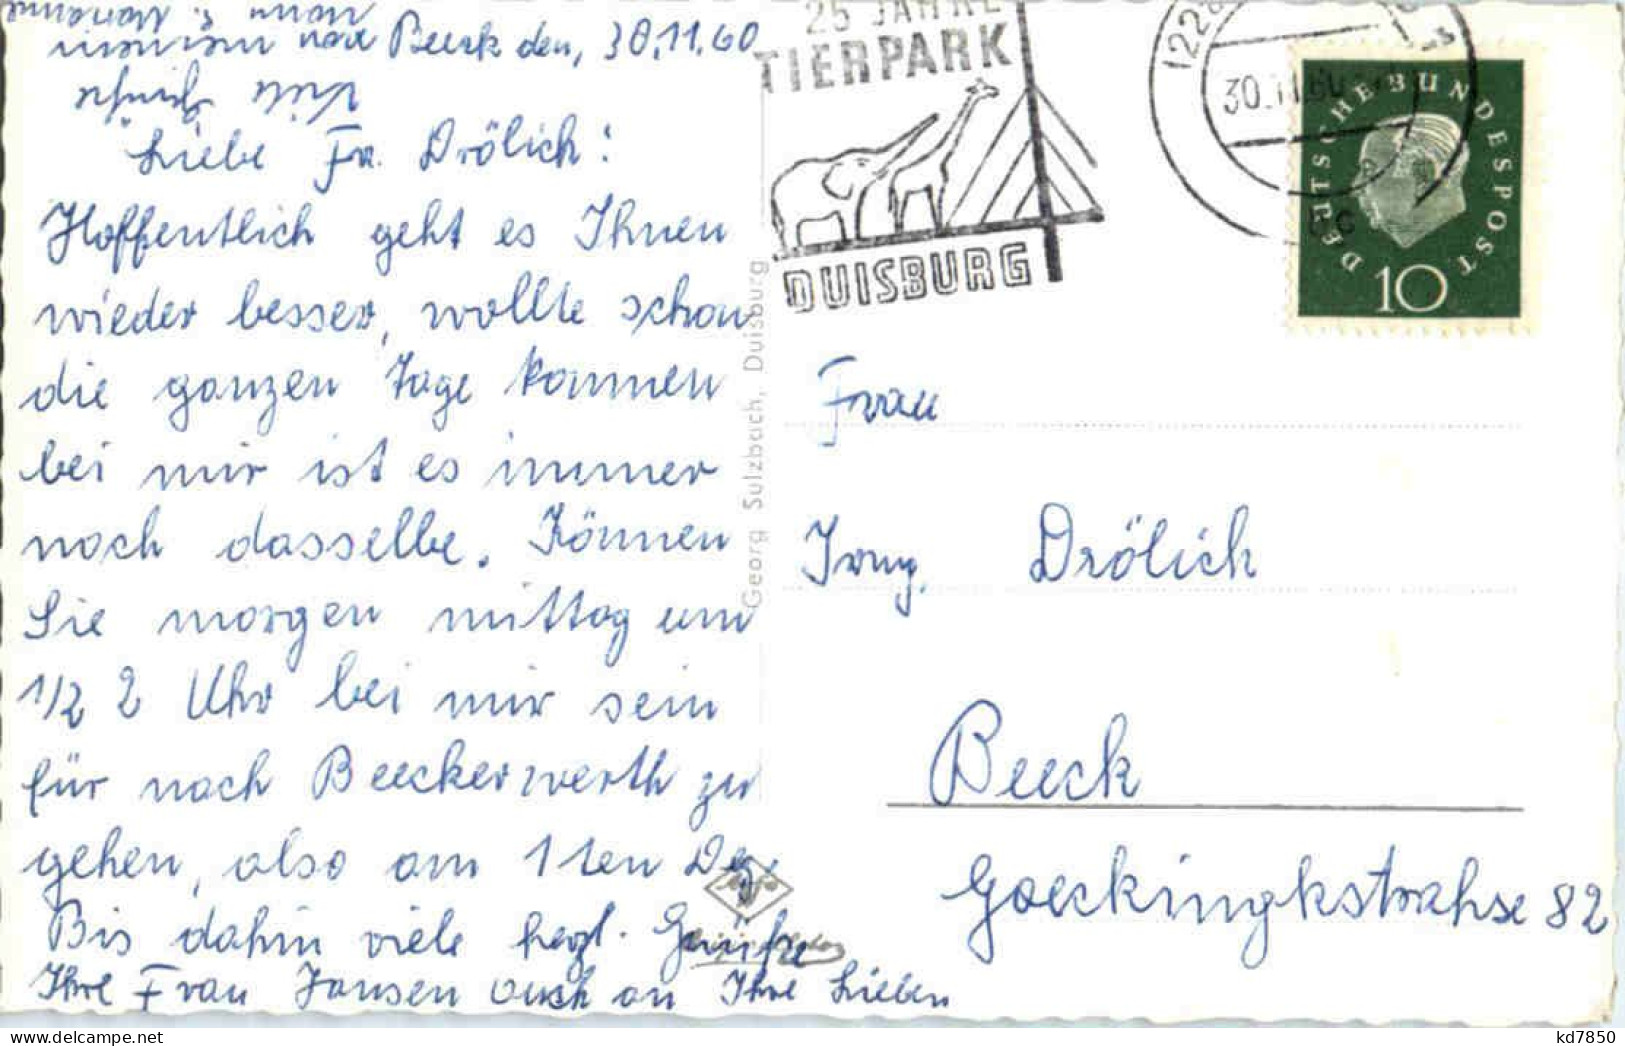 Beeck den, 30.11.60
Viele Grüße
Liebe Fr. Drölich!
Hoffentlich geht es Ihnen
wieder besser, wollte schon
die ganzen Tage kommen
bei mir ist es immer
noch dasselbe. Können
Sie morgen mittag um
1/2 2 Uhr bei mir sein
für nach Beeckerwerth zu
gehen, also am 1ten Dez.
Bis dahin viele herzl. Grüße
Ihre Frau Jansen auch an Ihre Lieben
Georg Sulzbach, Duisburg
25 JAHRE
TIERPARK
DUISBURG
30.11.60
DEUTSCHE BUNDESPOST
10
Frau
Irmg. Drölich
Beeck
Goeckingkstrahse 82
kd7850